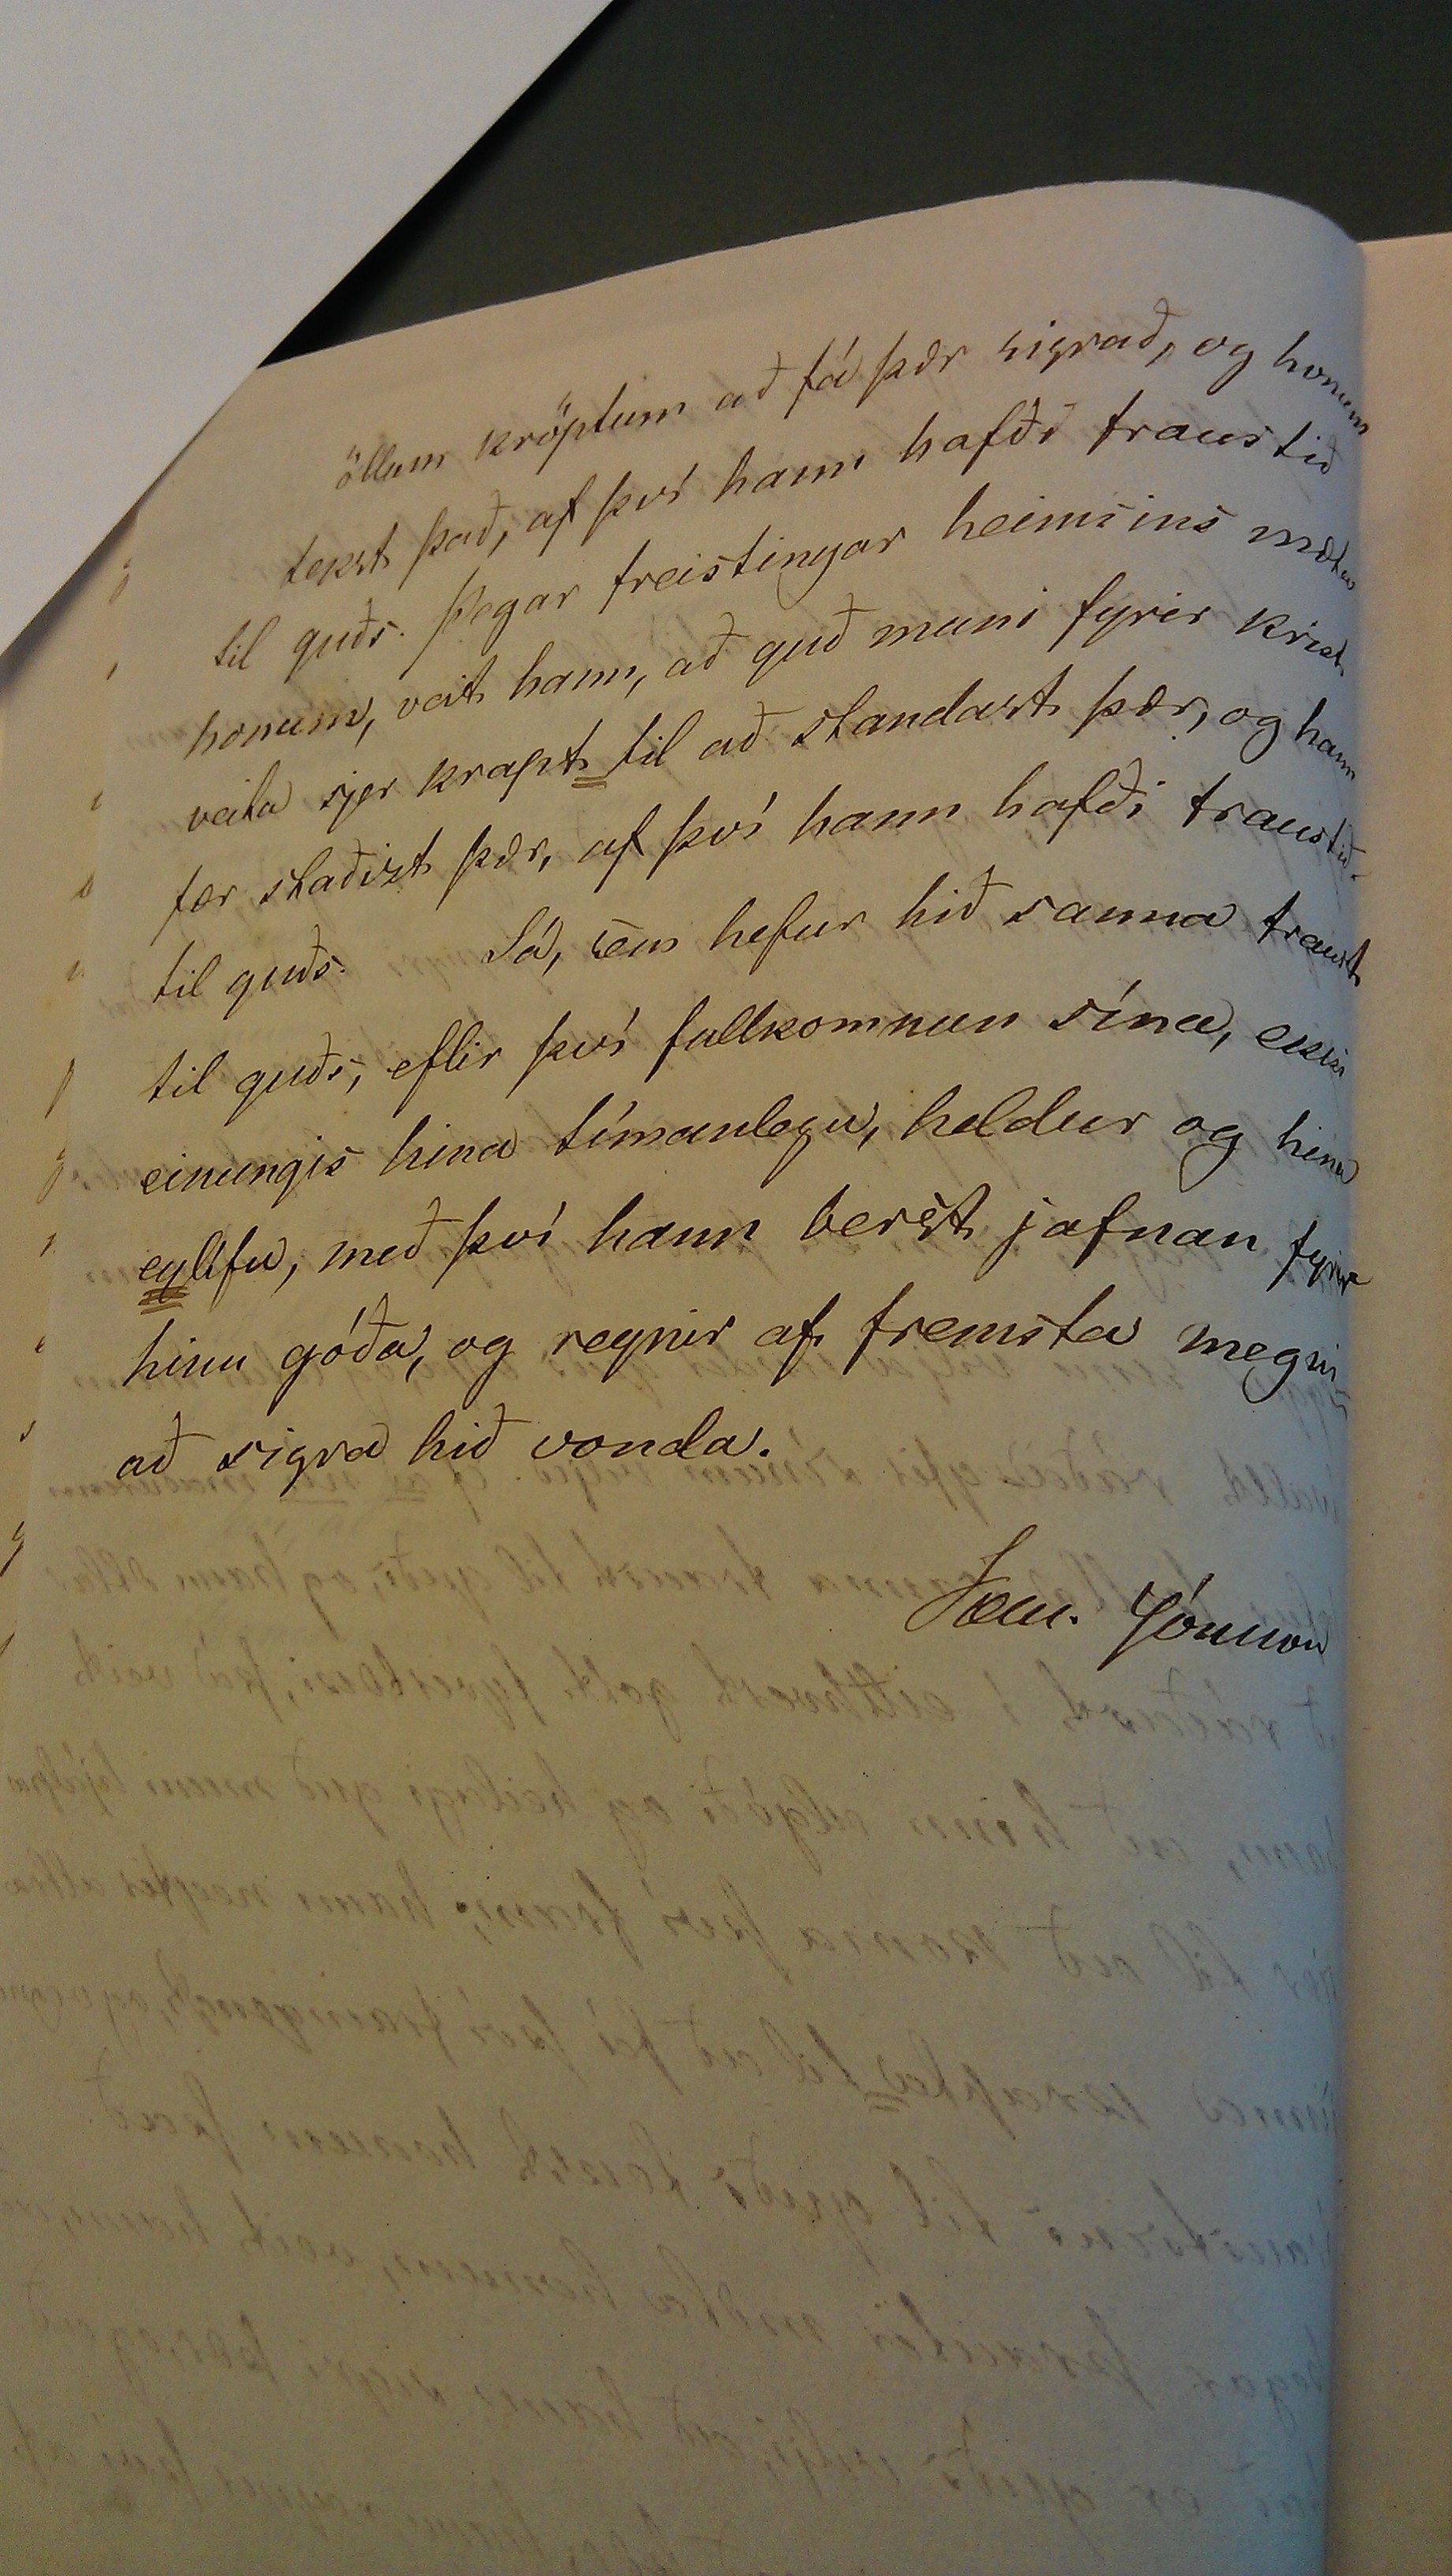 öllum kröptum að fá þær sigrað, og honum
tekst það, af því hann hafði traustið
til guðs. Þegar freistingar heimsins mæta
honum, veit hann, að guð muni fyrir krist
veita sjer krapt til að standast þær, og hann
fær staðizt þær, af því hann hafði traustið
til guðs. Sá, sem hefur hið sanna traust
til guðs, eflir því fullkomnun sína, ekki
einungis hina tímanlegu, heldur og hina
eylífu, með því hann berst jafnan fyrir
hinu góða, og reynir af fremsta megni
að sigra hið vonda.
Sæm. Jónsson